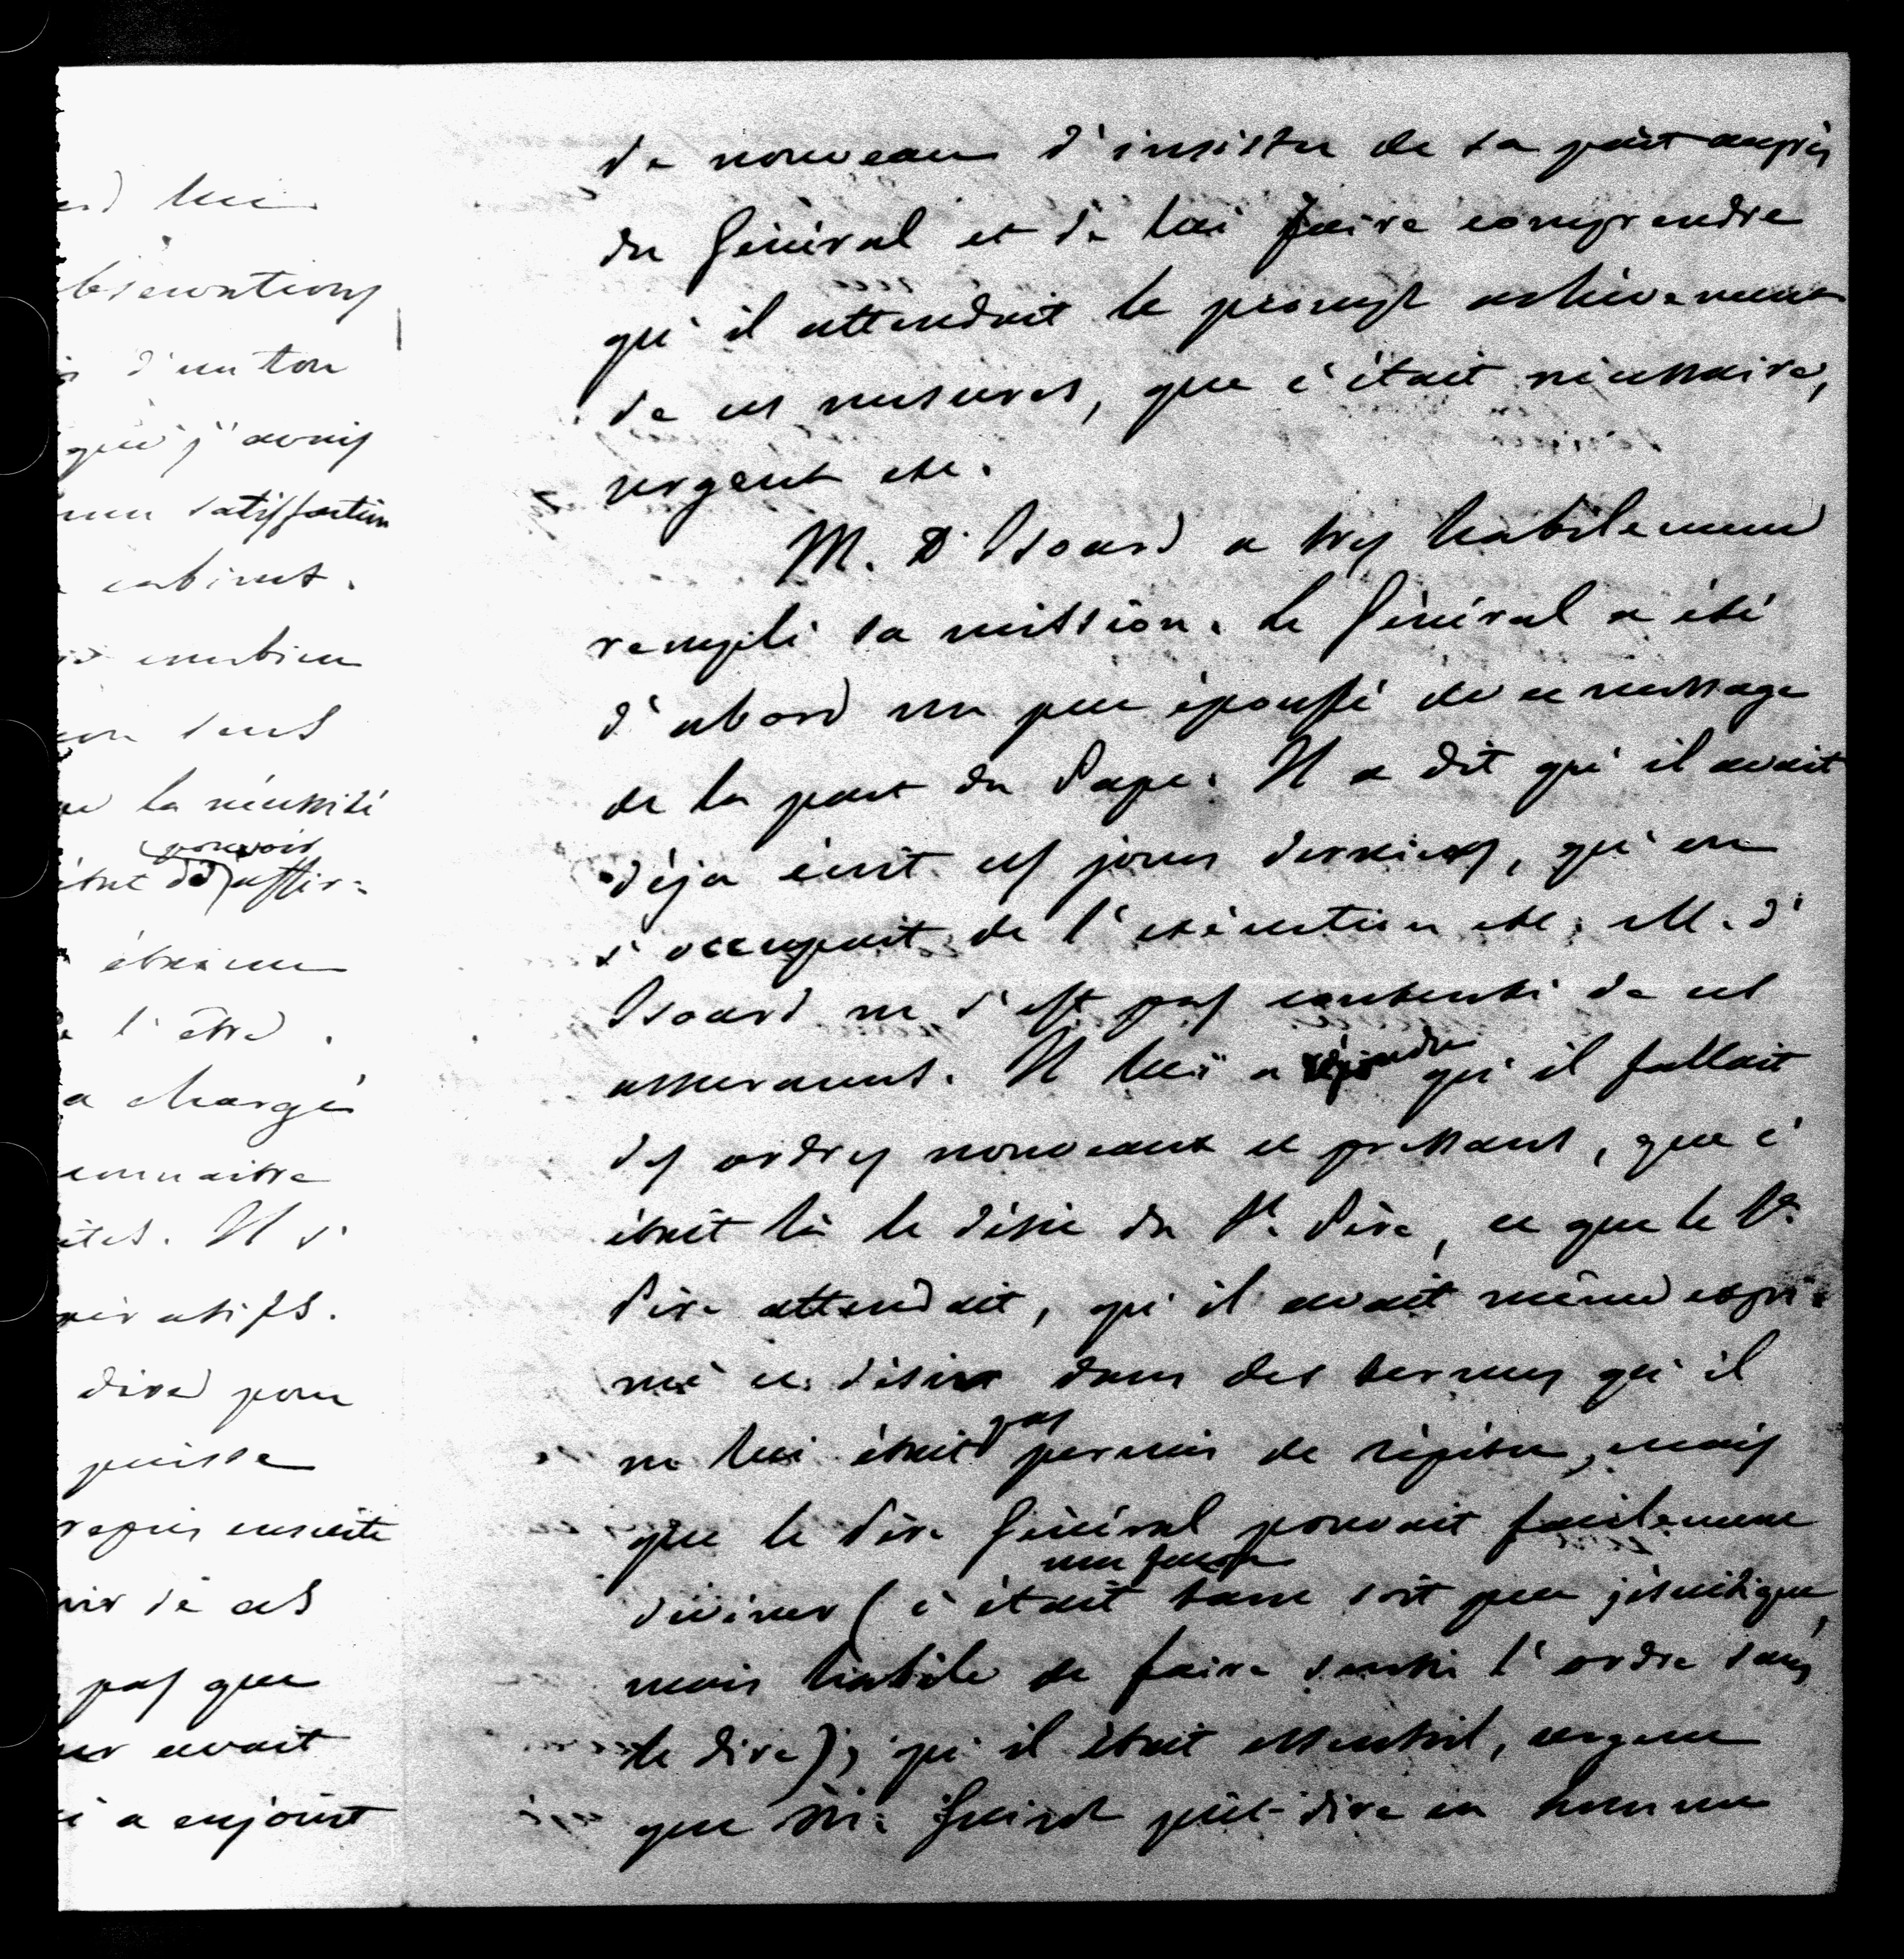 ed lui
bservations
d'un ton
qui j'avais
satisfaction
cabinet.
combien
sens
la nécessité
pouvoir
était de affir=
l'être.
a chargé
connaitre
Il s'
ératifs.
dire pour
puisse
repris ensuite
de ces
pas que
avait
a enjoint
de nouveau d'insister de sa part auprès
du Général et de lui faire comprendre
qu'il attendait le prompt achèvement
de ces mesures, que c'était nécessaire,
urgent etc.
M. D'Isoard a très habilement
rempli sa mission. Le Général a été
d'abord un peu épouffé de ce message
de la part du Pape. Il a dit qu'il avait
déja écrit ces jours derniers, qu'on
s'occupait de l'exécution etc. M. d'
Isoard ne s'est pas contenté de ces
assurances. Il lui a répondu qu'il fallait
des ordres nouveaux et pressans, que c'
était là le désir du St. Père, ce que le St.
Père attendait, qu'il avait même expri=
mé ce désir dans des termes qu'il
ne lui était pas permis de répéter, mais
que le Père Général pouvait facilement
une façon
deviner (c'était tant soit peu jésuitique,
mais habile de faire sentir l'ordre sans
le dire); qu'il était essentiel, urgent
que Mr. Guizot pût dire en homme